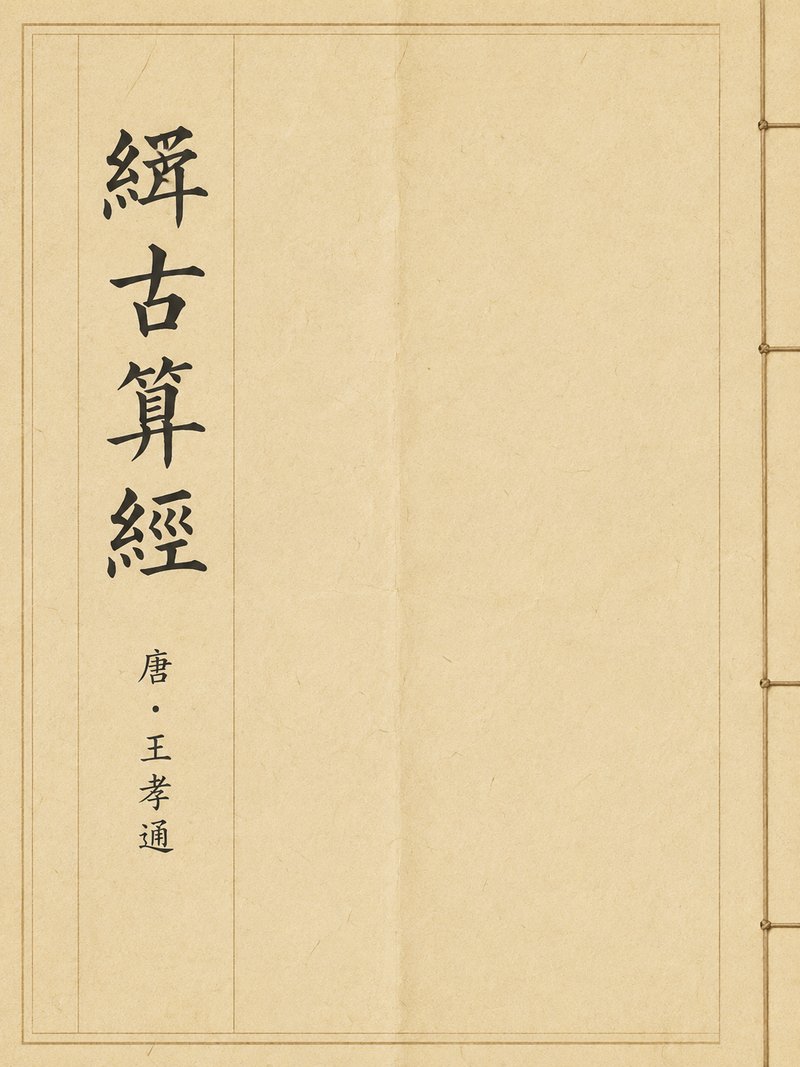 緝古算經
唐・王孝通